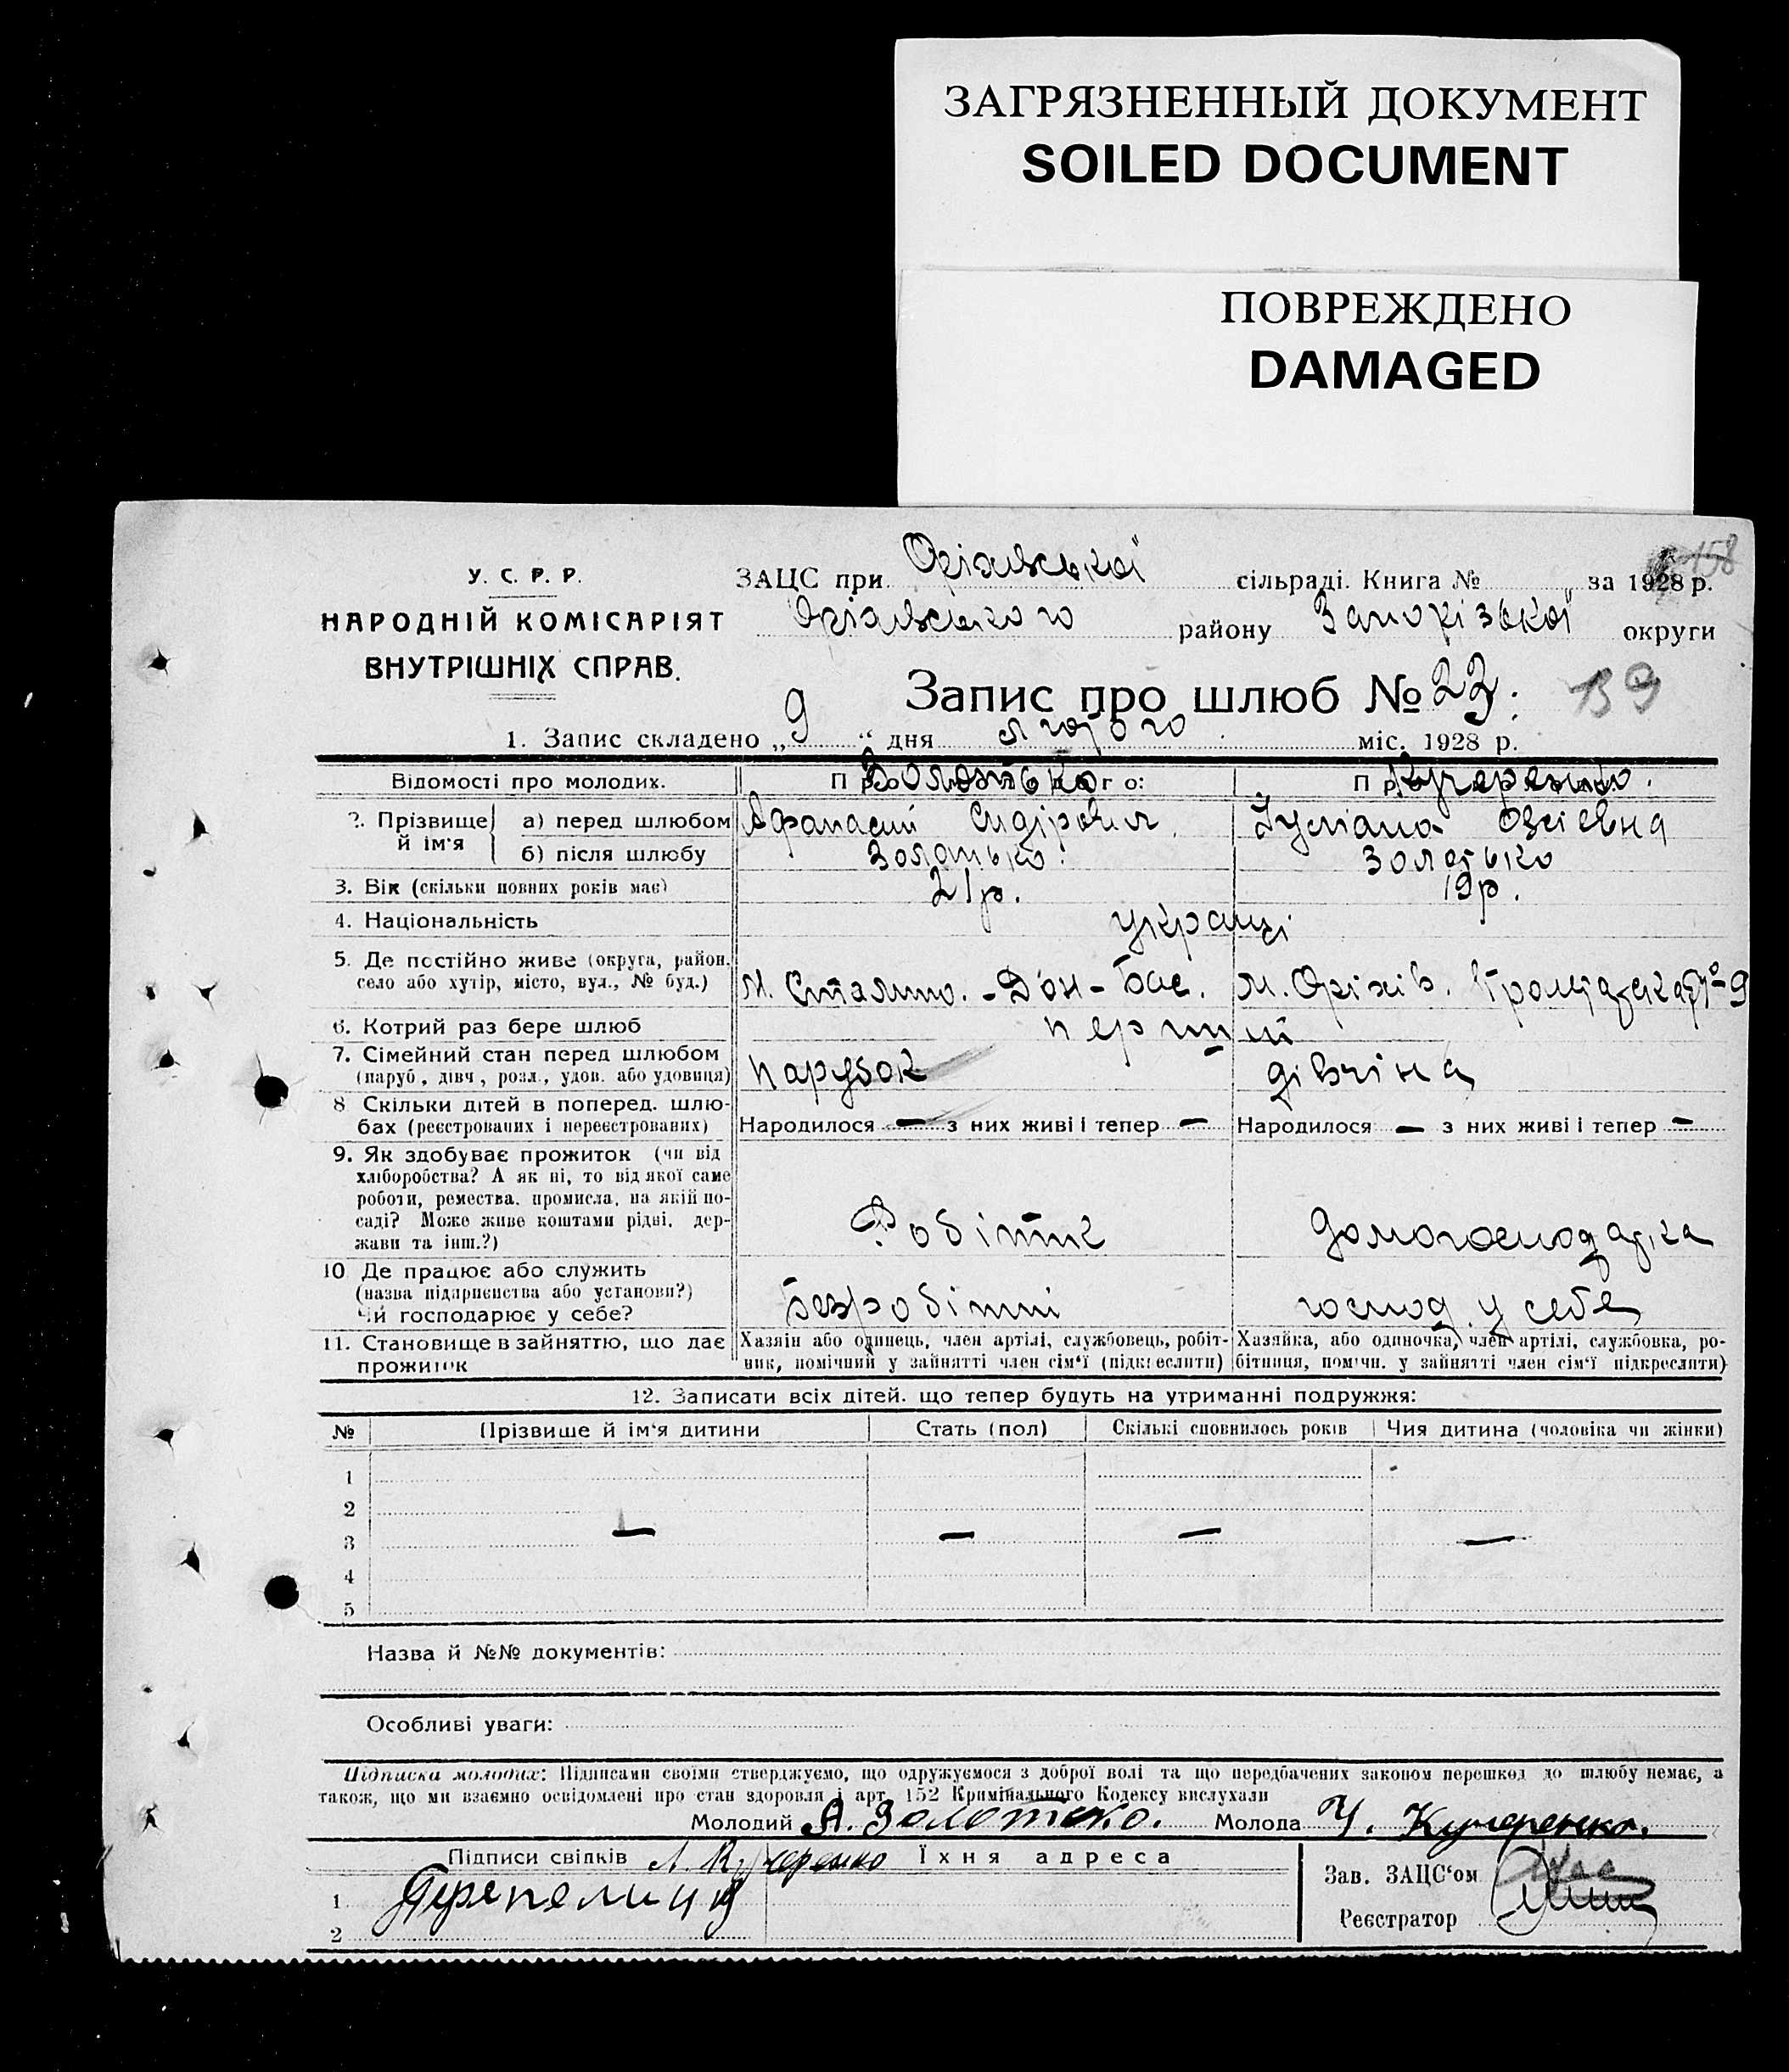 ЗАГРЯЗНЕННЫЙ ДОКУМЕНТ
SOILED DOCUMENT
ПОВРЕЖДЕНО
DAMAGED
158
У. С. Р. Р.
НАРОДНІЙ КОМІСАРІЯТ
ВНУТРІШНІХ СПРАВ.
ЗАЦС при Оріхівської сільраді. Книга № за 1928 р.
Оріхівського району Запорізької округи
Запис про шлюб № 22. 139
1. Запис складено „9“ дня лютого міс. 1928 р.
Відомості про молодих. Золотько Кучеренко.
2. Прізвище й ім'я
а) перед шлюбом Афанасий Сидірович. Ульяна Овсіевна
б) після шлюбу Золотько. Золотько
3. Вік (скільки повних років має) 21 р. 19 р.
4. Національність українці
5. Де постійно живе (округа, район, село або хутір, місто, вул., № буд.) М. Сталіно. - Дон-Бас. М. Оріхів. Громадська № 9
6. Котрий раз бере шлюб перший
7. Сімейний стан перед шлюбом (паруб., дівч., розл., удов. або удовиця) парубок дівчіна
8 Скільки дітей в поперед. шлюбах (реєстрованих і нереєстрованих) Народилося — з них живі і тепер — Народилося — з них живі і тепер —
9. Як здобуває прожиток (чи від
хліборобства? А як ні, то від якої саме
роботи, ремества, промисла, на якій по-
саді? Може живе коштами рідні, дер-
жави та інш.?) Робітник домогосподарка
10 Де працює або служить
(назва підприємства або установи?)
Чи господарює у себе? Безробітний господ. у себе
11. Становище в зайняттю, що дає прожиток
Хазяїн або одинець, член артілі, службовець, робіт-
ник, помічний у зайнятті член сім'ї (підкреслити)
Хазяйка, або одиночка, член артілі, службовка, ро-
бітниця, помічн. у зайнятті член сім'ї підкреслити)
12. Записати всіх дітей, що тепер будуть на утриманні подружжя:
№ Прізвище й ім'я дитини Стать (пол) Скількі сповнилось років Чия дитина (чоловіка чи жінки)
1
2
3 — — — —
4
5
Назва й №№ документів:
Особливі уваги:
Підписка молодих: Підписами своїми стверджуємо, що одружуємося з доброї волі та що передбачених законом перешкод до шлюбу немає, а
також, що ми взаємно освідомлені про стан здоровля і арт. 152 Кримінального Кодексу вислухали
Молодий А. Золотько. Молода У. Кучеренко.
Підписи свідків Л. Кучеренко Їхня адреса
1 Перепелиця
2
Зав. ЗАЦС'ом
Реєстратор